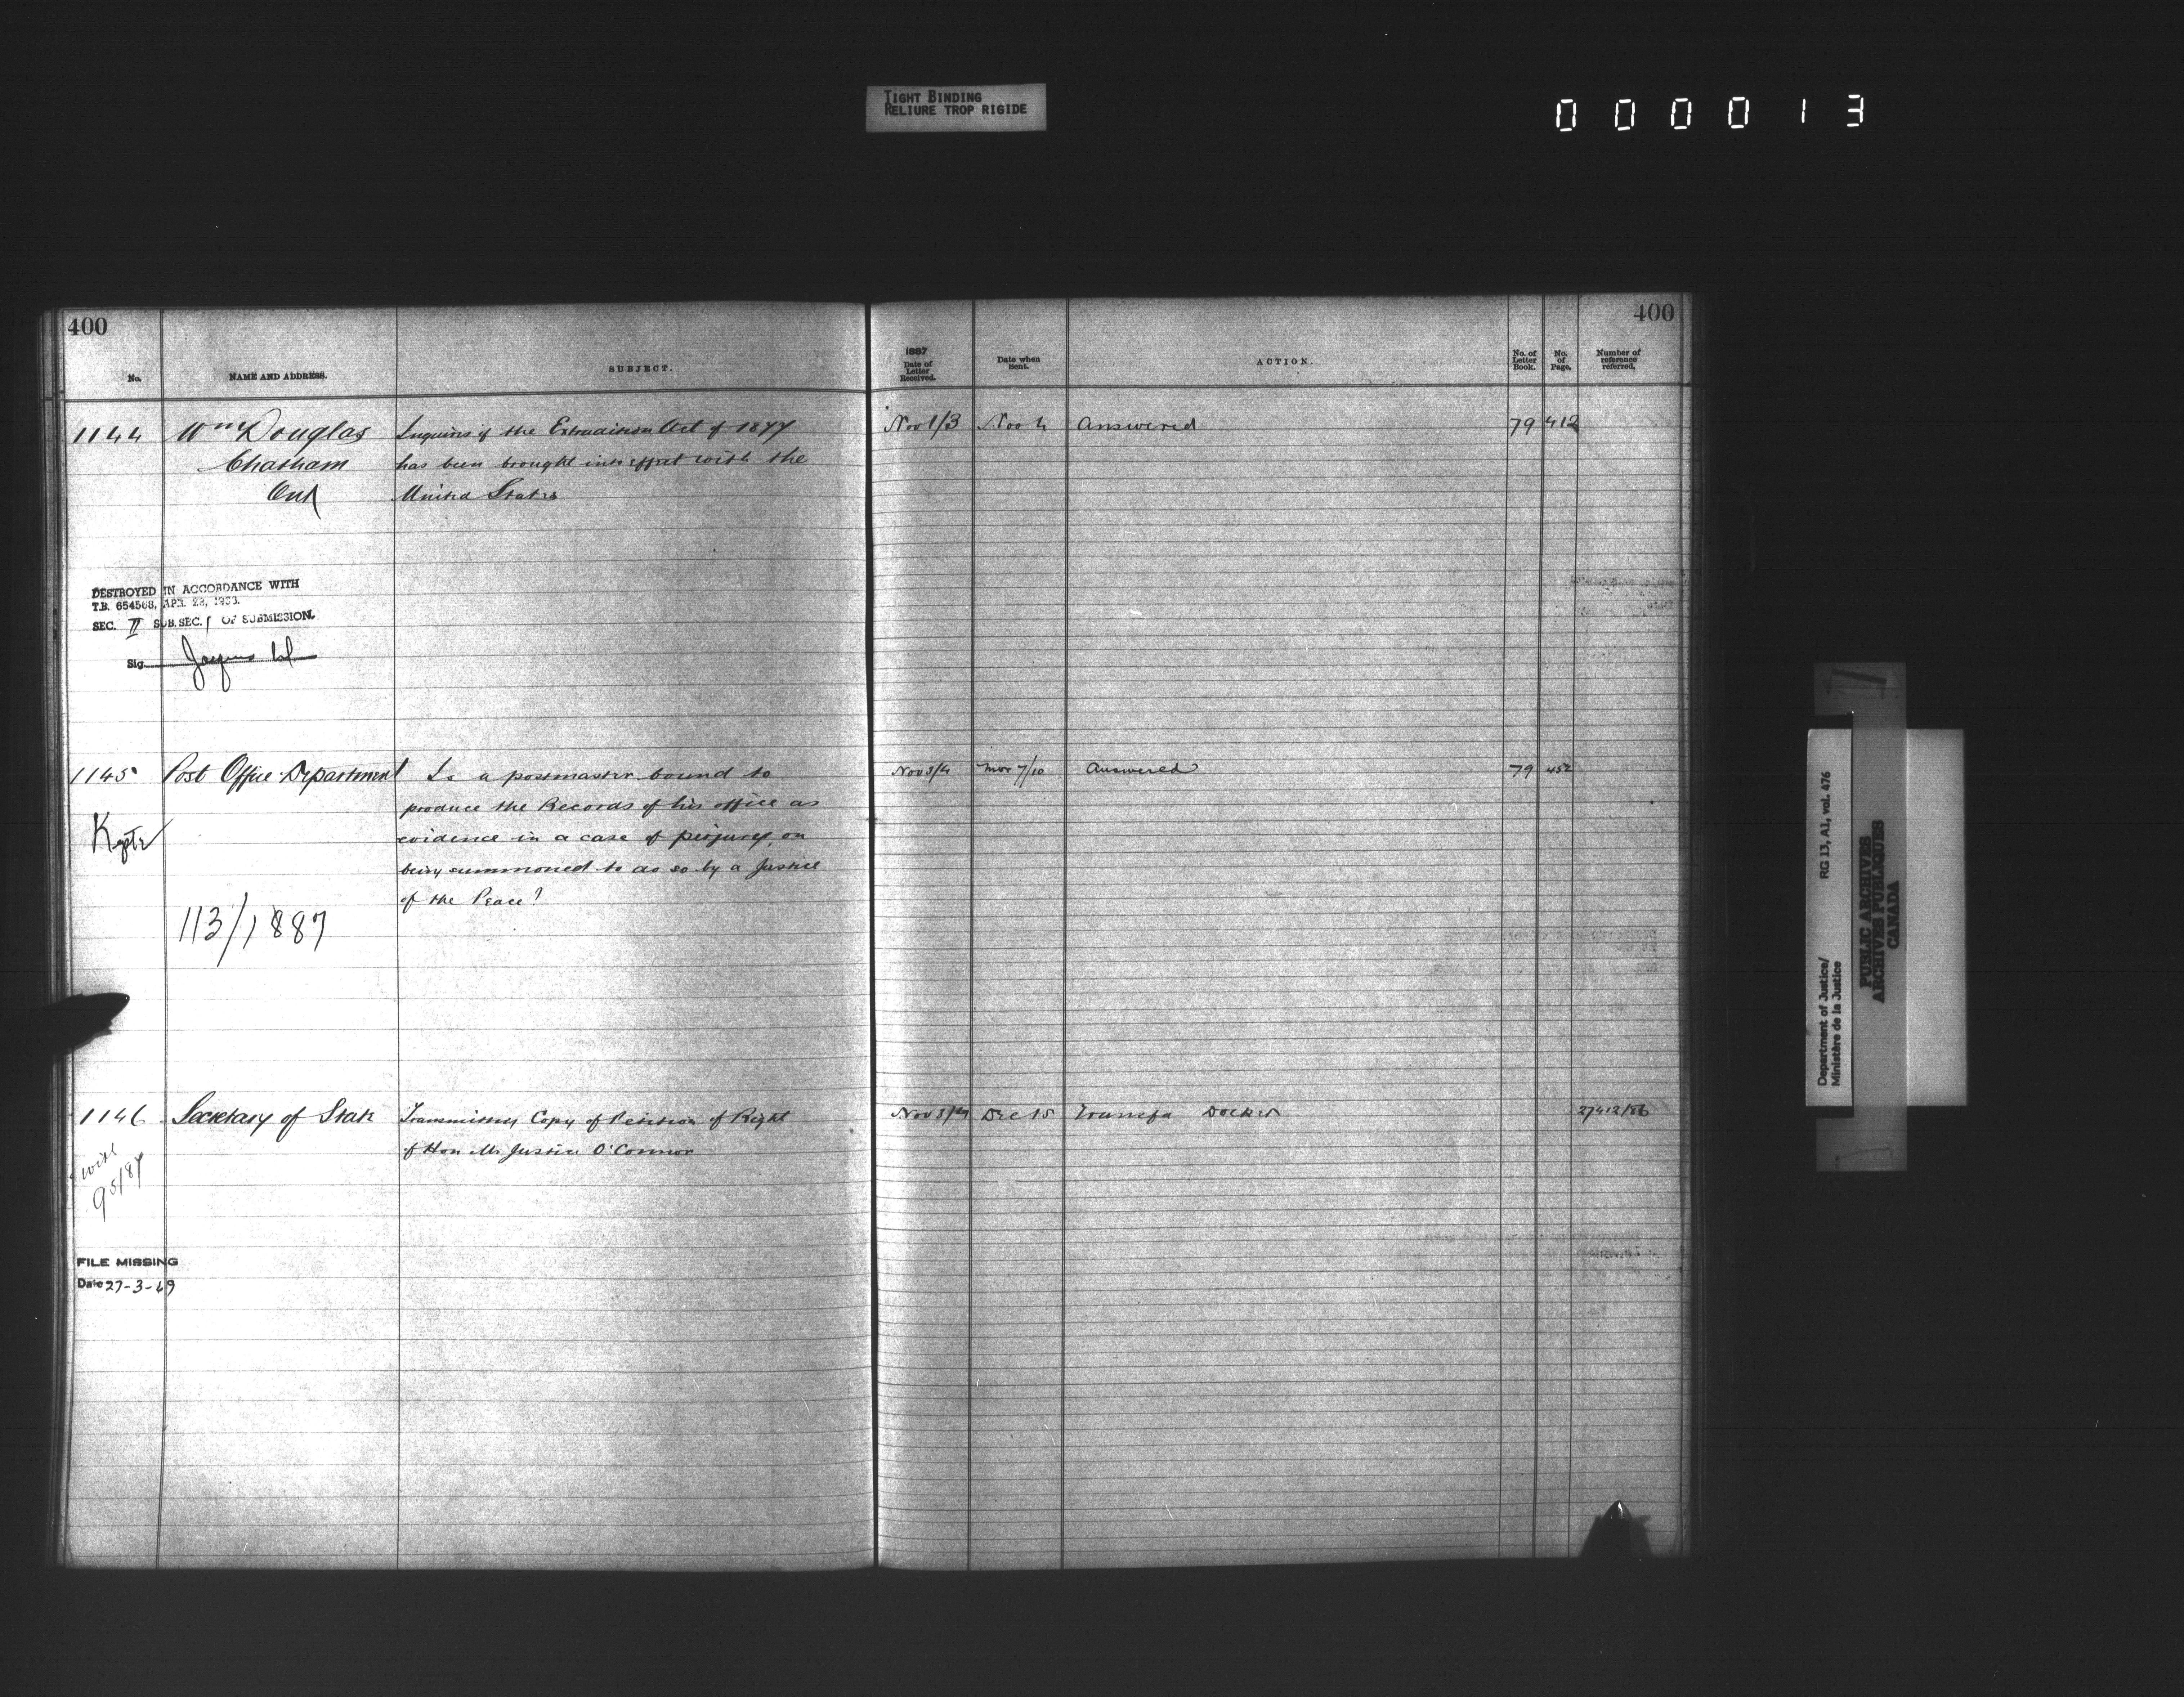 TIGHT BINDING
RELIURE TROP RIGIDE
000013
400
No.
NAME AND ADDRESS.
SUBJECT.
1887
Date of
Letter
Received.
Date when
Sent.
ACTION.
No. of
Letter
Book.
No.
of
Page.
Number of
reference
referred.
400
1144 Wm Douglas Inquires if the Extradition Act of 1877 Nov 1/3 Nov 4 Answered 79 412
Chatham has been brought into effect with the
Ont United States
DESTROYED IN ACCORDANCE WITH
T.B. 654568, APR. 22, 1963.
SEC. II SUB.SEC. 1 OF SUBMISSION.
Sig.
1145 Post Office Department Is a postmaster bound to Nov 3/4 Nov 7/10 Answered 79 452
produce the Records of his office as
evidence in a case of perjury, on
being summoned to do so by a Justice
of the Peace?
113/1887
1146 Secretary of State Transmitting Copy of Petition of Right Nov 3/4 Dec 15 27412/86
of Hon Mr Justice O'Connor
with
95/87
FILE MISSING
Date 27-3-69
Department of Justice/ RG 13, A1, vol. 476
Ministère de la Justice
PUBLIC ARCHIVES
ARCHIVES PUBLIQUES
CANADA